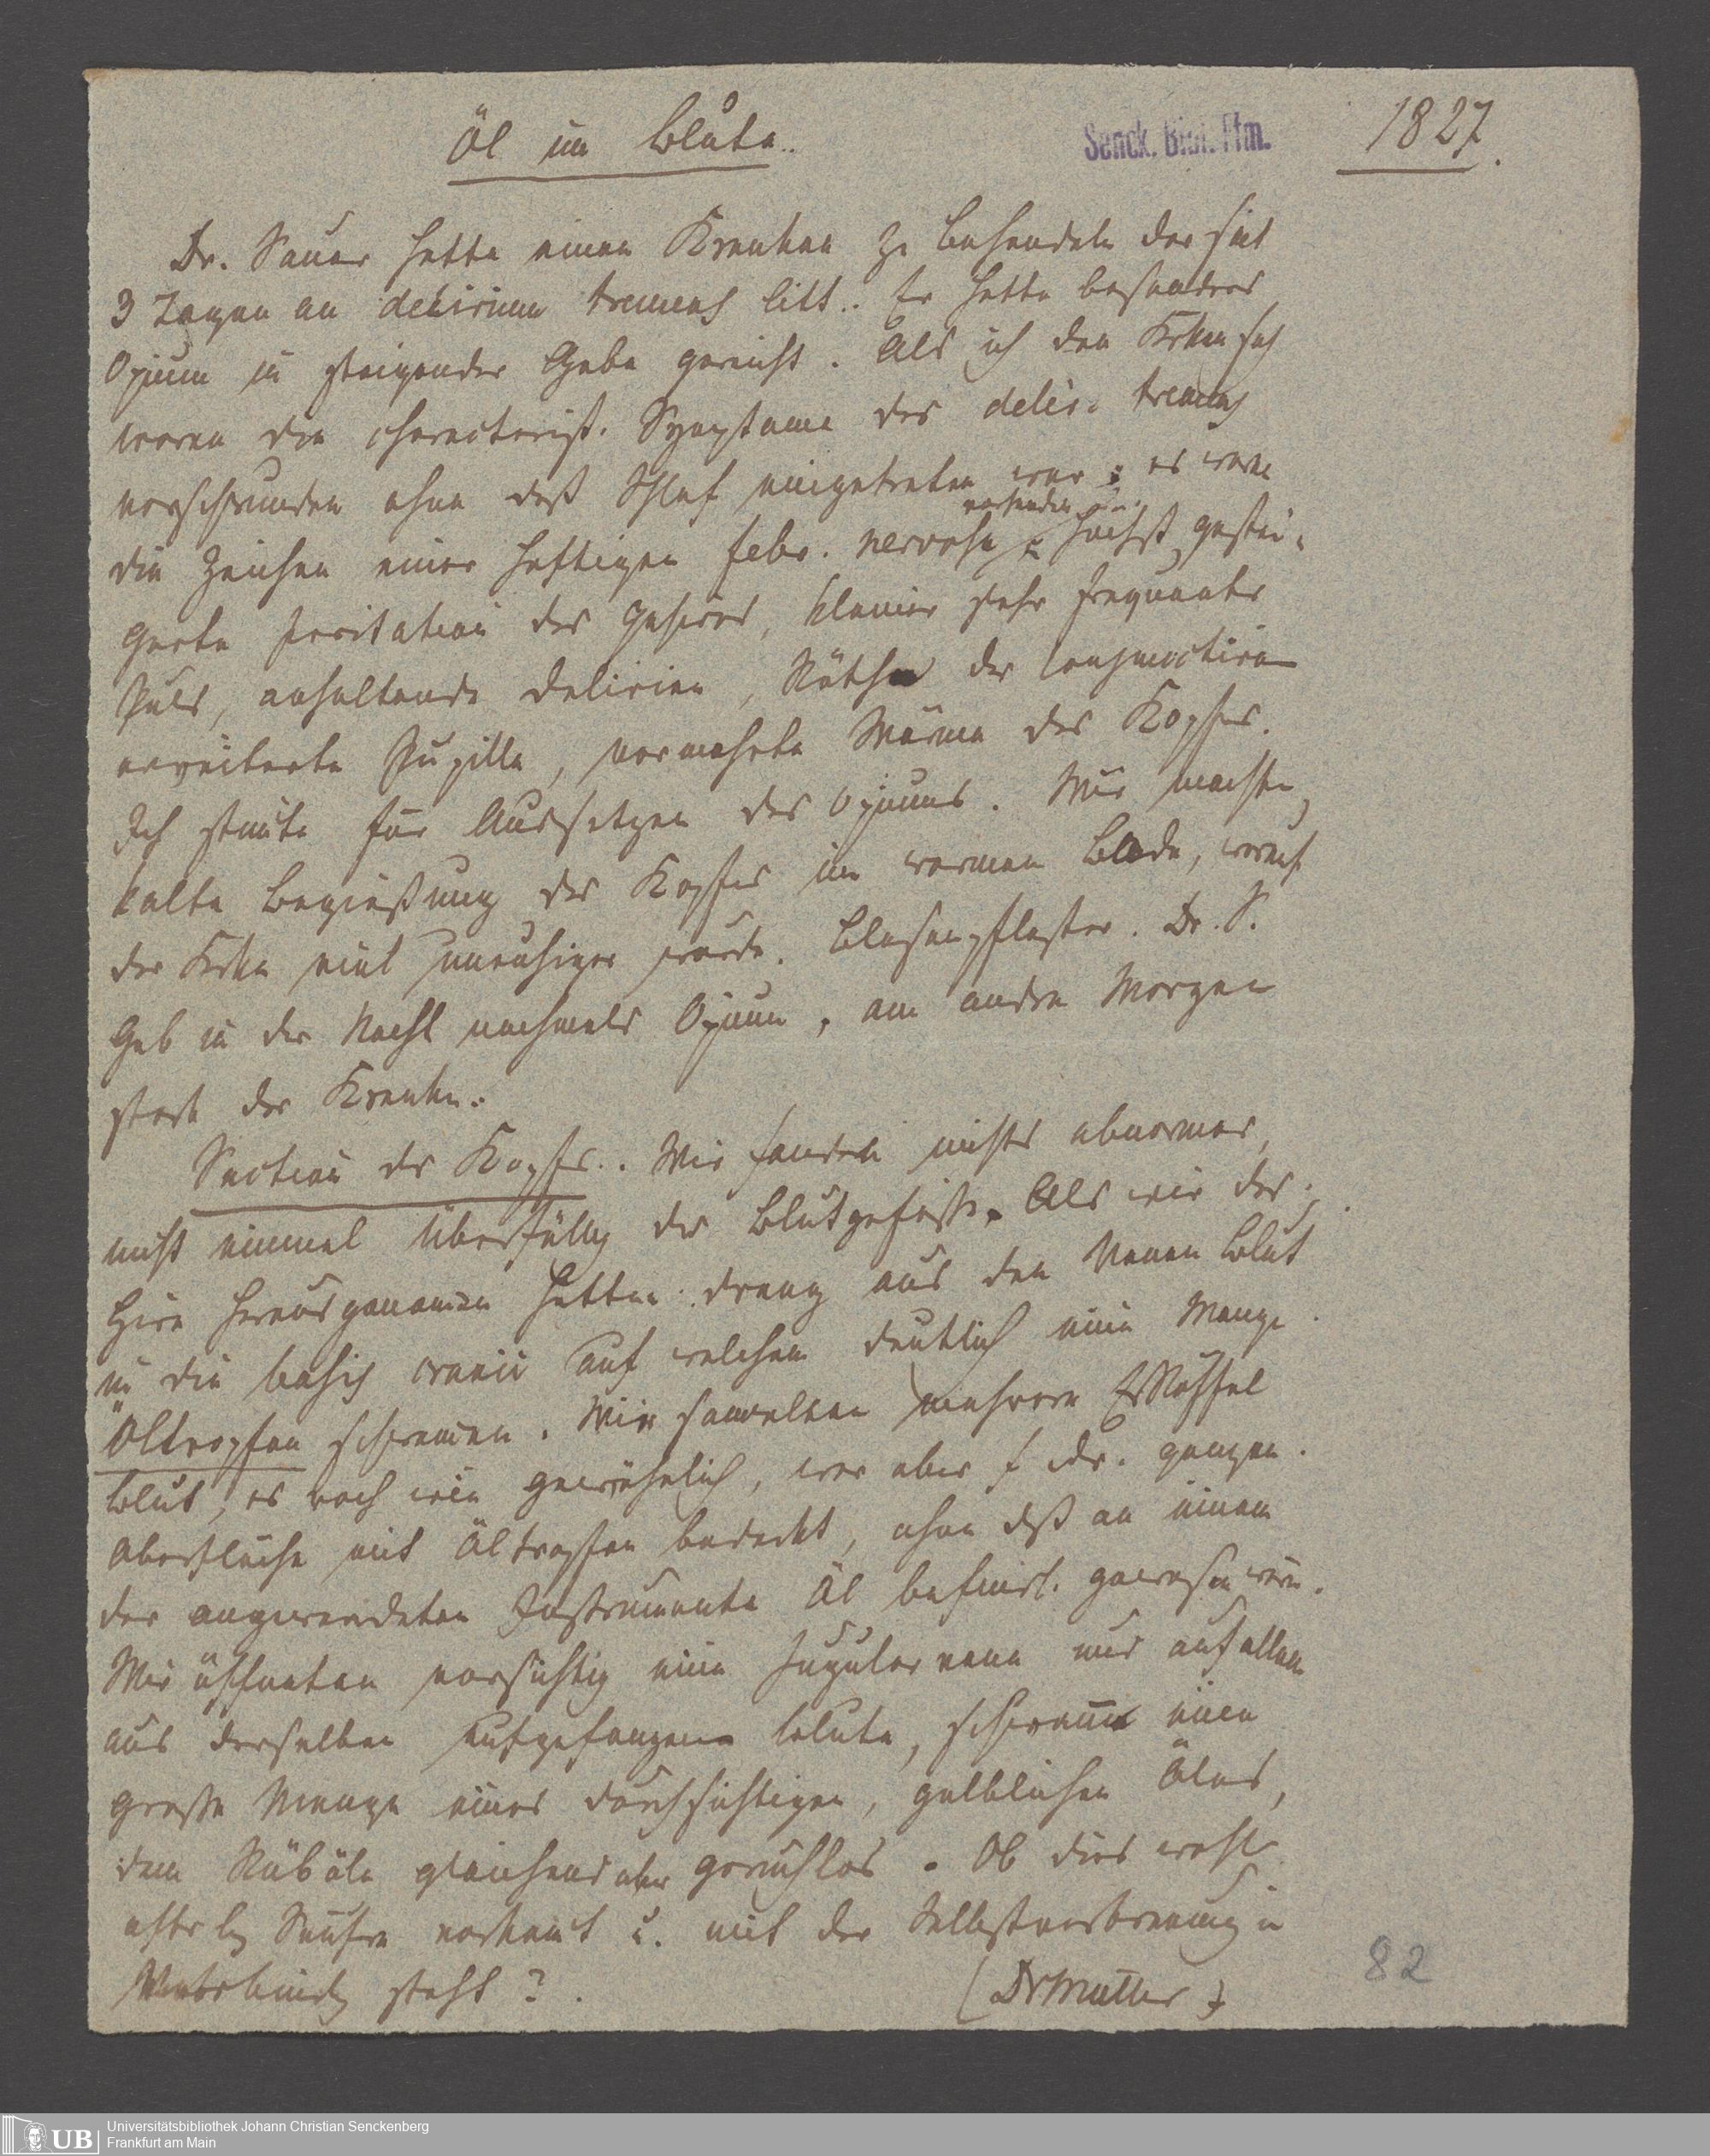 Öl im Blute.
Senck. Bibl. Ffm.
1827.
Dr. Sauer hatte einen Kranken zu behandeln der seit
3 Tagen an delirium tremens litt. Er hatte besonders
Opium in steigender Gabe gereicht. Als ich den Krken sah
waren die characterist. Symptome des delir. tremens
verschwunden ohne daß Schlaf eingetreten war; es waren
die Zeichen einer heftigen febr. nervosa vorhanden, höchst gestei-
gerte Irritation des Gehirns, kleiner sehr frequenter
Puls, anhaltende Delirien, Röthe der Conjunctiva
erweiterte Pupille, vermehrte Wärme des Kopfes.
Ich stimte für Aussetzen des Opiums. Wir machten
kalte Begießung des Kopfes im warmen Bade, worauf
der Krke viel unruhiger wurde. Blasenpflaster. Dr. S.
gab in der Nacht nochmals Opium, am andern Morgen
starb der Kranke.
Section des Kopfes. Wir fanden nichts abnormes,
nicht einmal Überfüllg der Blutgefässe. Als wir das
Hirn herausgenomen hatten drang aus den Venen Blut
in die basis cranii auf welchem deutlich eine Menge
Öltropfen schwamen. Wir sammelten mehrere Eßlöffel
Blut, es roch wie gewöhnlich, war aber auf der ganzen
Oberfläche mit Öltropfen bedeckt, ohne daß an einem
der angewendeten Instrumente Öl befindl. gewesen wäre.
Wir öffneten vorsichtig eine Jugularvene und auf allem
aus derselben aufgefangenen Blute, schwamm eine
große Menge eines durchsichtigen, gelblichen Öles,
dem Rüböle gleichend aber geruchlos. Ob dies wohl
öfter bey Säufern vorkomt u. mit der Selbstverbrennung in
Verbindg steht?
(Dr Mütter)
82
UB
Universitätsbibliothek Johann Christian Senckenberg
Frankfurt am Main